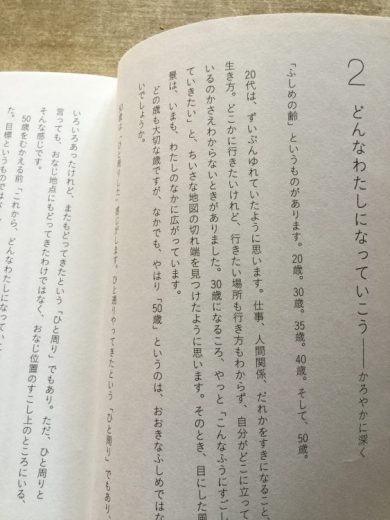 2 どんなわたしになっていこう――かろやかに深く
「ふしめの齢」というものがあります。20歳。30歳。35歳。40歳。そして、50歳。
20代は、ずいぶんゆれていたように思います。仕事、人間関係、だれかをすきになること、
生き方。どこかに行きたいけれど、行きたい場所も行き方もわからず、自分がどこに立って
いるのかさえわからないときがありました。30歳になるころ、やっと「こんなふうにすごし
ていきたい」と、ちいさな地図の切れ端を見つけたように思います。そのとき、目にした風
景は、いまも、わたしのなかに広がっています。
どの歳も大切な歳ですが、なかでも、やはり「50歳」というのは、おおきなふしめではな
いでしょうか。
ひと通りやってきたという「ひと周り」でもあり、
いろいろあったけれど、またもどってきたという「ひと周り」でもあり。ただ、ひと周りと
言っても、おなじ地点にもどってきたわけではなく、おなじ位置のすこし上のところにいる、
そんな感じです。
50歳をむかえる前「これから、どんなわたしになってい
た。目標というものでは